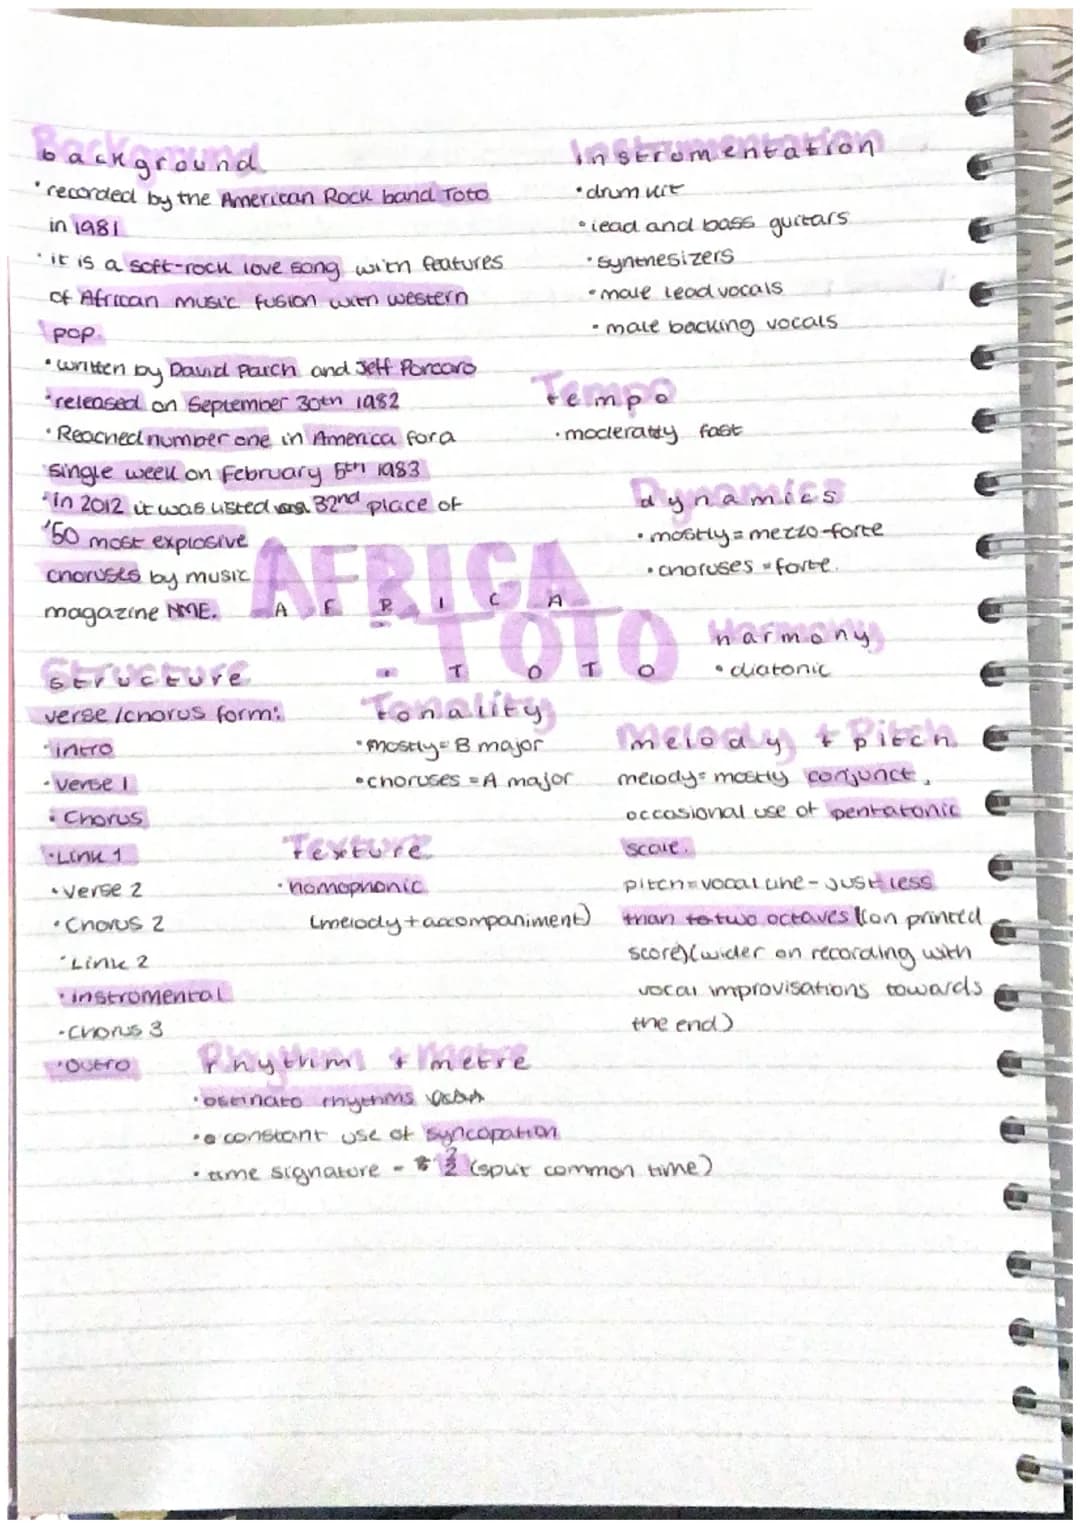 background
• recorded by the American Rock band Toto
in 1981
• it is a soft-rock love song with features
of African music fusion with western
pop.
• written by David Paich and Jeff Porcaro
• released on September 30th 1982
• Reached number one in America for a
single week on February 5th 1983
• in 2012 it was listed 32nd place of
'50 most explosive
choruses by music
magazine NME.
Structure
verse/chorus form:
• intro
• verse 1
• Chorus
• Link 1
• Verse 2
• Chorus 2
• Link 2
• instromental
• Chorus 3
• Outro
AFRICA
A F R I C A
- TOTO
- T O T O
Tonality
• mostly = B major
• choruses = A major
Texture
• homophonic
(melody + accompaniment)
Rhythm + metre
• ostinato rhythms
• constant use of syncopation
• time signature - 2/2 (split common time)
instrumentation
• drum kit
• lead and bass guitars
• synthesizers
• male lead vocals
• male backing vocals
tempo
• moderatly fast
dynamics
• mostly = mezzo-forte
• choruses = forte.
harmony
• diatonic
melody + pitch
melody = mostly conjunct,
occasional use of pentatonic
scale.
pitch = vocal line - just less
than to two octaves (on printed
score) (wider on recording with
vocal improvisations towards
the end)